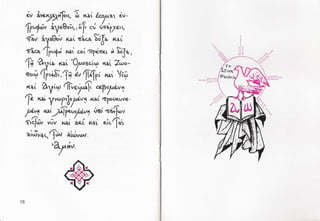 ἐν ἀνεκλαλήτοις, ὧ καὶ ἔσομαι ἐν-
τρυφῶν ἀληθῶς, ὅτι σὺ ὑπάρχεις,
τῶν ἀγαθῶν καὶ πᾶσα δόξα καὶ
πᾶσα τρυφὴ καὶ σοὶ πρέπει ἡ δόξα,
τῇ ἁγίᾳ καὶ ὁμοουσίῳ καὶ ζωο-
ποιῷ Τριάδι, τῷ ἐν Πατρὶ καὶ Υἱῷ
καὶ ἁγίῳ Πνεύματι σεβομένῃ
τε καὶ γνωριζομένῃ καὶ προσκυνου-
μένῃ καὶ λατρευομένῃ ὑπὸ πάντων
πιστῶν νῦν καὶ ἀεὶ καὶ εἰς τοὺς
αἰῶνας τῶν αἰώνων.
Ἀμήν.
58